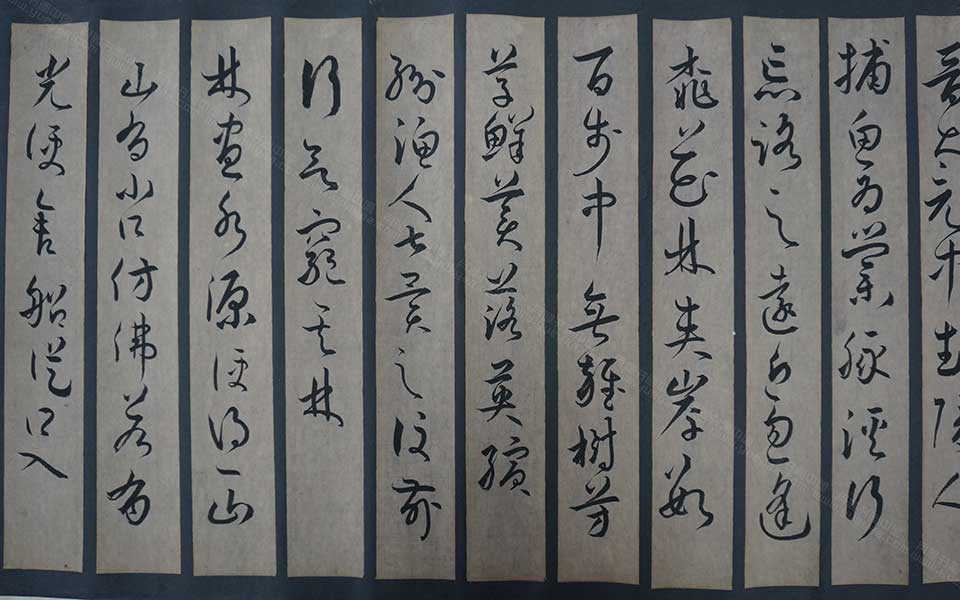 晉太元中武陵人
捕魚為業緣溪行
忘路之遠近忽逢
桃花林夾岸數
百步中無雜樹芳
草鮮美落英繽
紛漁人甚異之復前
行欲窮其林
林盡水源便得一山
山有小口仿佛若有
光便舍船從口入